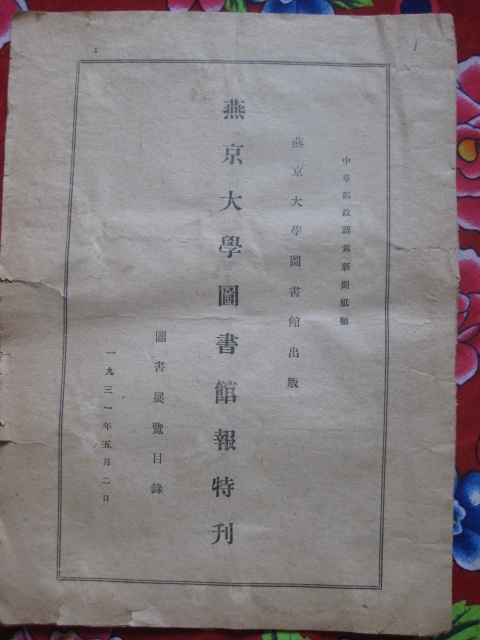 中華郵政認為新聞紙類
燕京大學圖書館出版
燕京大學圖書館報特刊
圖書展覽目錄
一九三一年五月二日
1